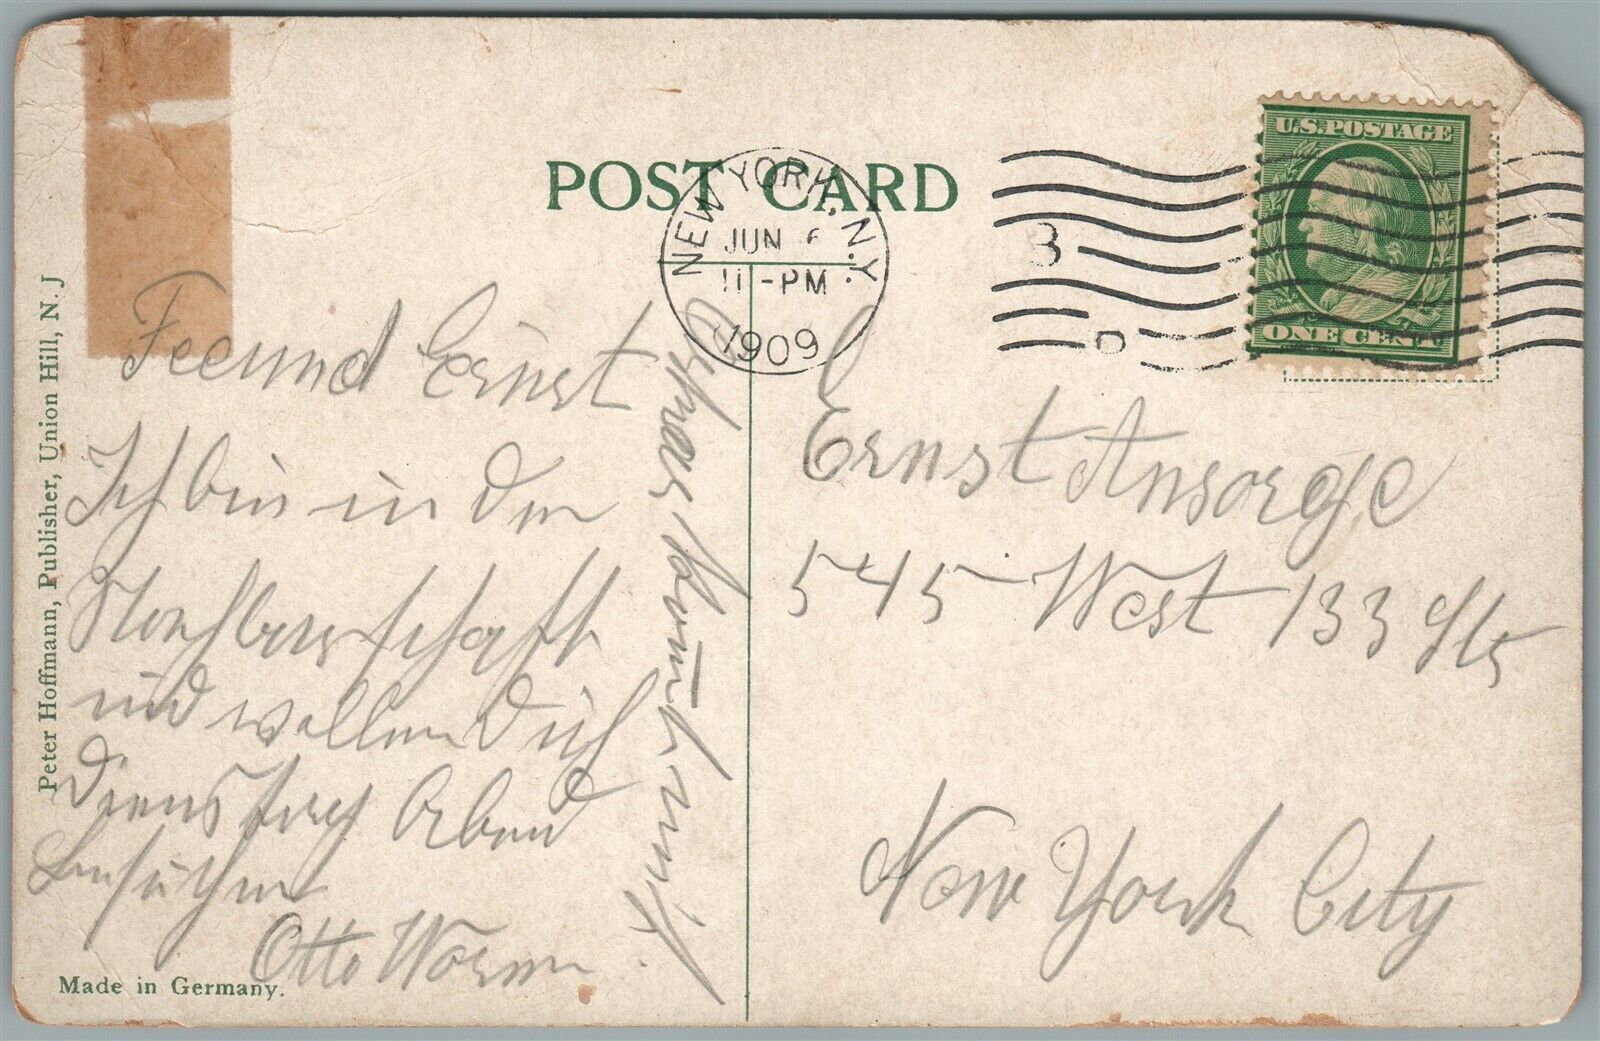 POST CARD
NEW YORK, N.Y.
JUN 6
11-PM
1909
3
D
U.S. POSTAGE
ONE CENT
Peter Hoffmann, Publisher, Union Hill, N. J
Freund Ernst
Ich bin in der
Nachbarschaft
und wollen Dich
Dienstag Abend
besuchen
Otto Worm
nicht
Ernst Ansorge
545 West 133 Str
New York City
Made in Germany.